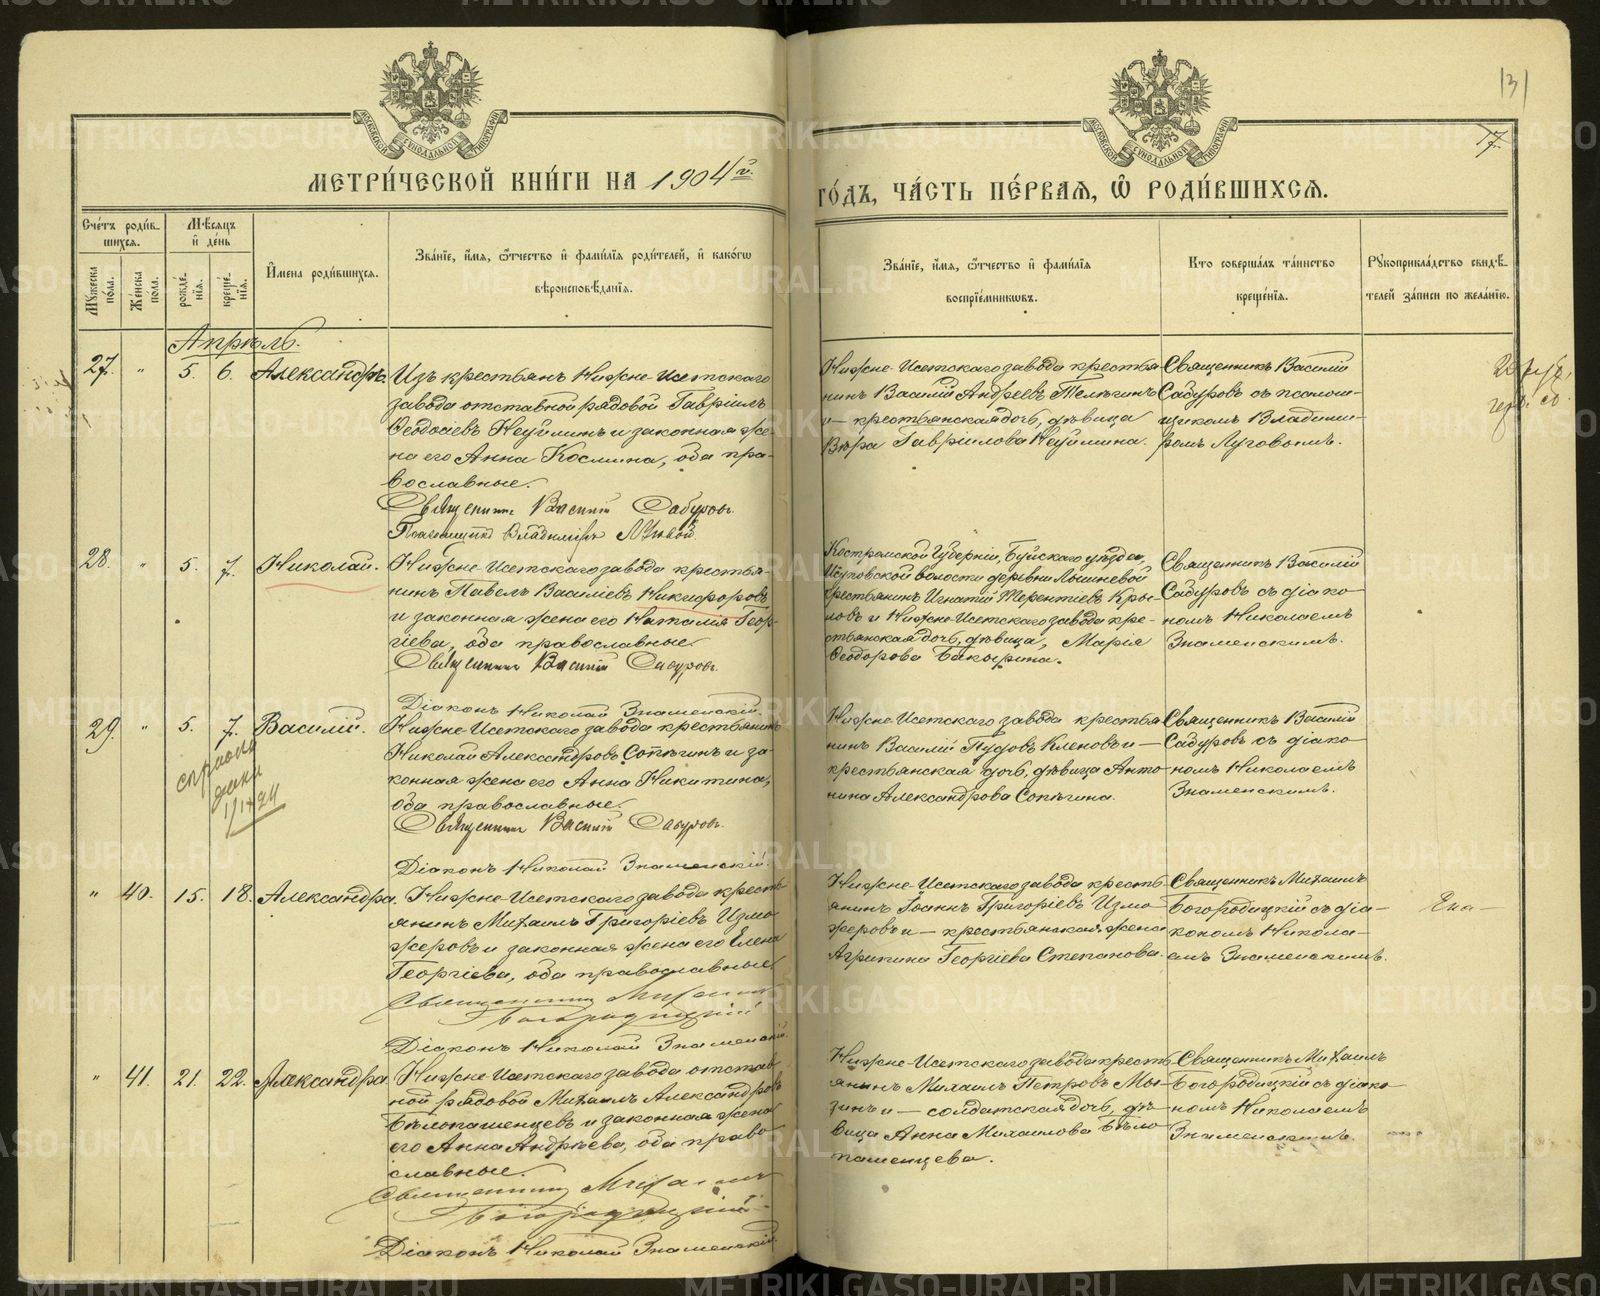 131
17.
МЕТРИ́ЧЕСКОЙ КНИ́ГИ НА 1904 й.
ГО́ДЪ, ЧА́СТЬ ПЕ́РВАЯ, Ѽ РОДИ́ВШИХСЯ.
Сче́тъ роди́в-
шихся.
Мѣ́сяцъ
и҆ де́нь
Му́жеска
по́ла.
Же́нска
по́ла.
рожде́-
нїя.
креще́-
нїя.
И҆мена роди́вшихся.
Зва́нїе, и҆́мя, ѻ҆́тчество и҆ фами́лїя роди́телей, и҆ како́гѡ
вѣроисповѣ́данїя.
Зва́нїе, и҆́мя, ѻ҆́тчество и҆ фами́лїя
воспрїе́мникѡвъ.
Кто соверша́лъ та́инство
креще́нїя.
Рꙋкоприкла́дство свидѣ́-
телей за́писи по жела́нїю.
Апрѣль.
27. " 5. 6. Александръ.
Изъ крестьянъ Нижне-Исетскаго
завода отставной рядовой Гавріилъ
Ѳеодосіевъ Неуйминъ и законная же-
на его Анна Космина, оба пра-
вославные.
Священникъ Василій Сабуровъ.
Псаломщикъ Владиміръ Луговой.
Нижне-Исетскаго завода крестья-
нинъ Василій Андреевъ Телѣгинъ
и — крестьянская дочь, дѣвица
Вѣра Гавріилова Неуймина.
Священникъ Василій
Сабуровъ съ псалом-
щикомъ Владими-
ромъ Луговымъ.
28. " 5. 7. Николай.
Нижне-Исетскаго завода крестья-
нинъ Павелъ Василіевъ Никифоровъ
и законная жена его Наталія Геор-
гіева, оба православные.
Священникъ Василій Сабуровъ.
Діаконъ Николай Знаменскій.
Костромской Губерніи, Буйскаго уѣзда,
волости деревни
крестьянинъ Игнатій Терентіевъ Кры-
ловъ и Нижне-Исетскаго завода кре-
стьянская дочь, дѣвица, Марія
Ѳеодорова Бакырина.
Священникъ Василій
Сабуровъ съ діако-
номъ Николаемъ
Знаменскимъ.
29. " 5. 7. Василій.
Нижне-Исетскаго завода крестьянинъ
Николай Александровъ Сопѣгинъ и за-
конная жена его Анна Никитина,
оба православные.
Священникъ Василій Сабуровъ.
Діаконъ Николай Знаменскій.
Нижне-Исетскаго завода крестья-
нинъ Василій Пудовъ Кленовъ и —
крестьянская дочь, дѣвица Анто-
нина Александрова Сопѣгина.
Священникъ Василій
Сабуровъ съ діако-
номъ Николаемъ
Знаменскимъ.
" 40. 15. 18. Александра.
Нижне-Исетскаго завода кресть-
янинъ Михаилъ Григоріевъ Измо-
жеровъ и законная жена его Елена
Георгіева, оба православные.
Священникъ Михаилъ
Богородицкій
Діаконъ Николай Знаменскій.
Нижне-Исетскаго завода кресть-
янинъ Іоаннъ Григоріевъ Измо-
жеровъ и — крестьянская жена
Агрипина Георгіева Степанова.
Священникъ Михаилъ
Богородицкій съ діа-
кономъ Никола-
емъ Знаменскимъ.
" 41. 21. 22. Александра.
Нижне-Исетскаго завода отстав-
ной рядовой Михаилъ Александровъ
Бѣлопашенцевъ и законная жена
его Анна Андреева, оба право-
славные.
Священникъ Михаилъ
Богородицкій.
Діаконъ Николай Знаменскій.
Нижне-Исетскаго завода кресть-
янинъ Михаилъ Петровъ Мы-
зинъ и — солдатская дочь, дѣ-
вица Анна Михаилова Бѣло-
пашенцева.
Священникъ Михаилъ
Богородицкій съ діако-
номъ Николаемъ
Знаменскимъ.
METRIKI.GASO-URAL.RU